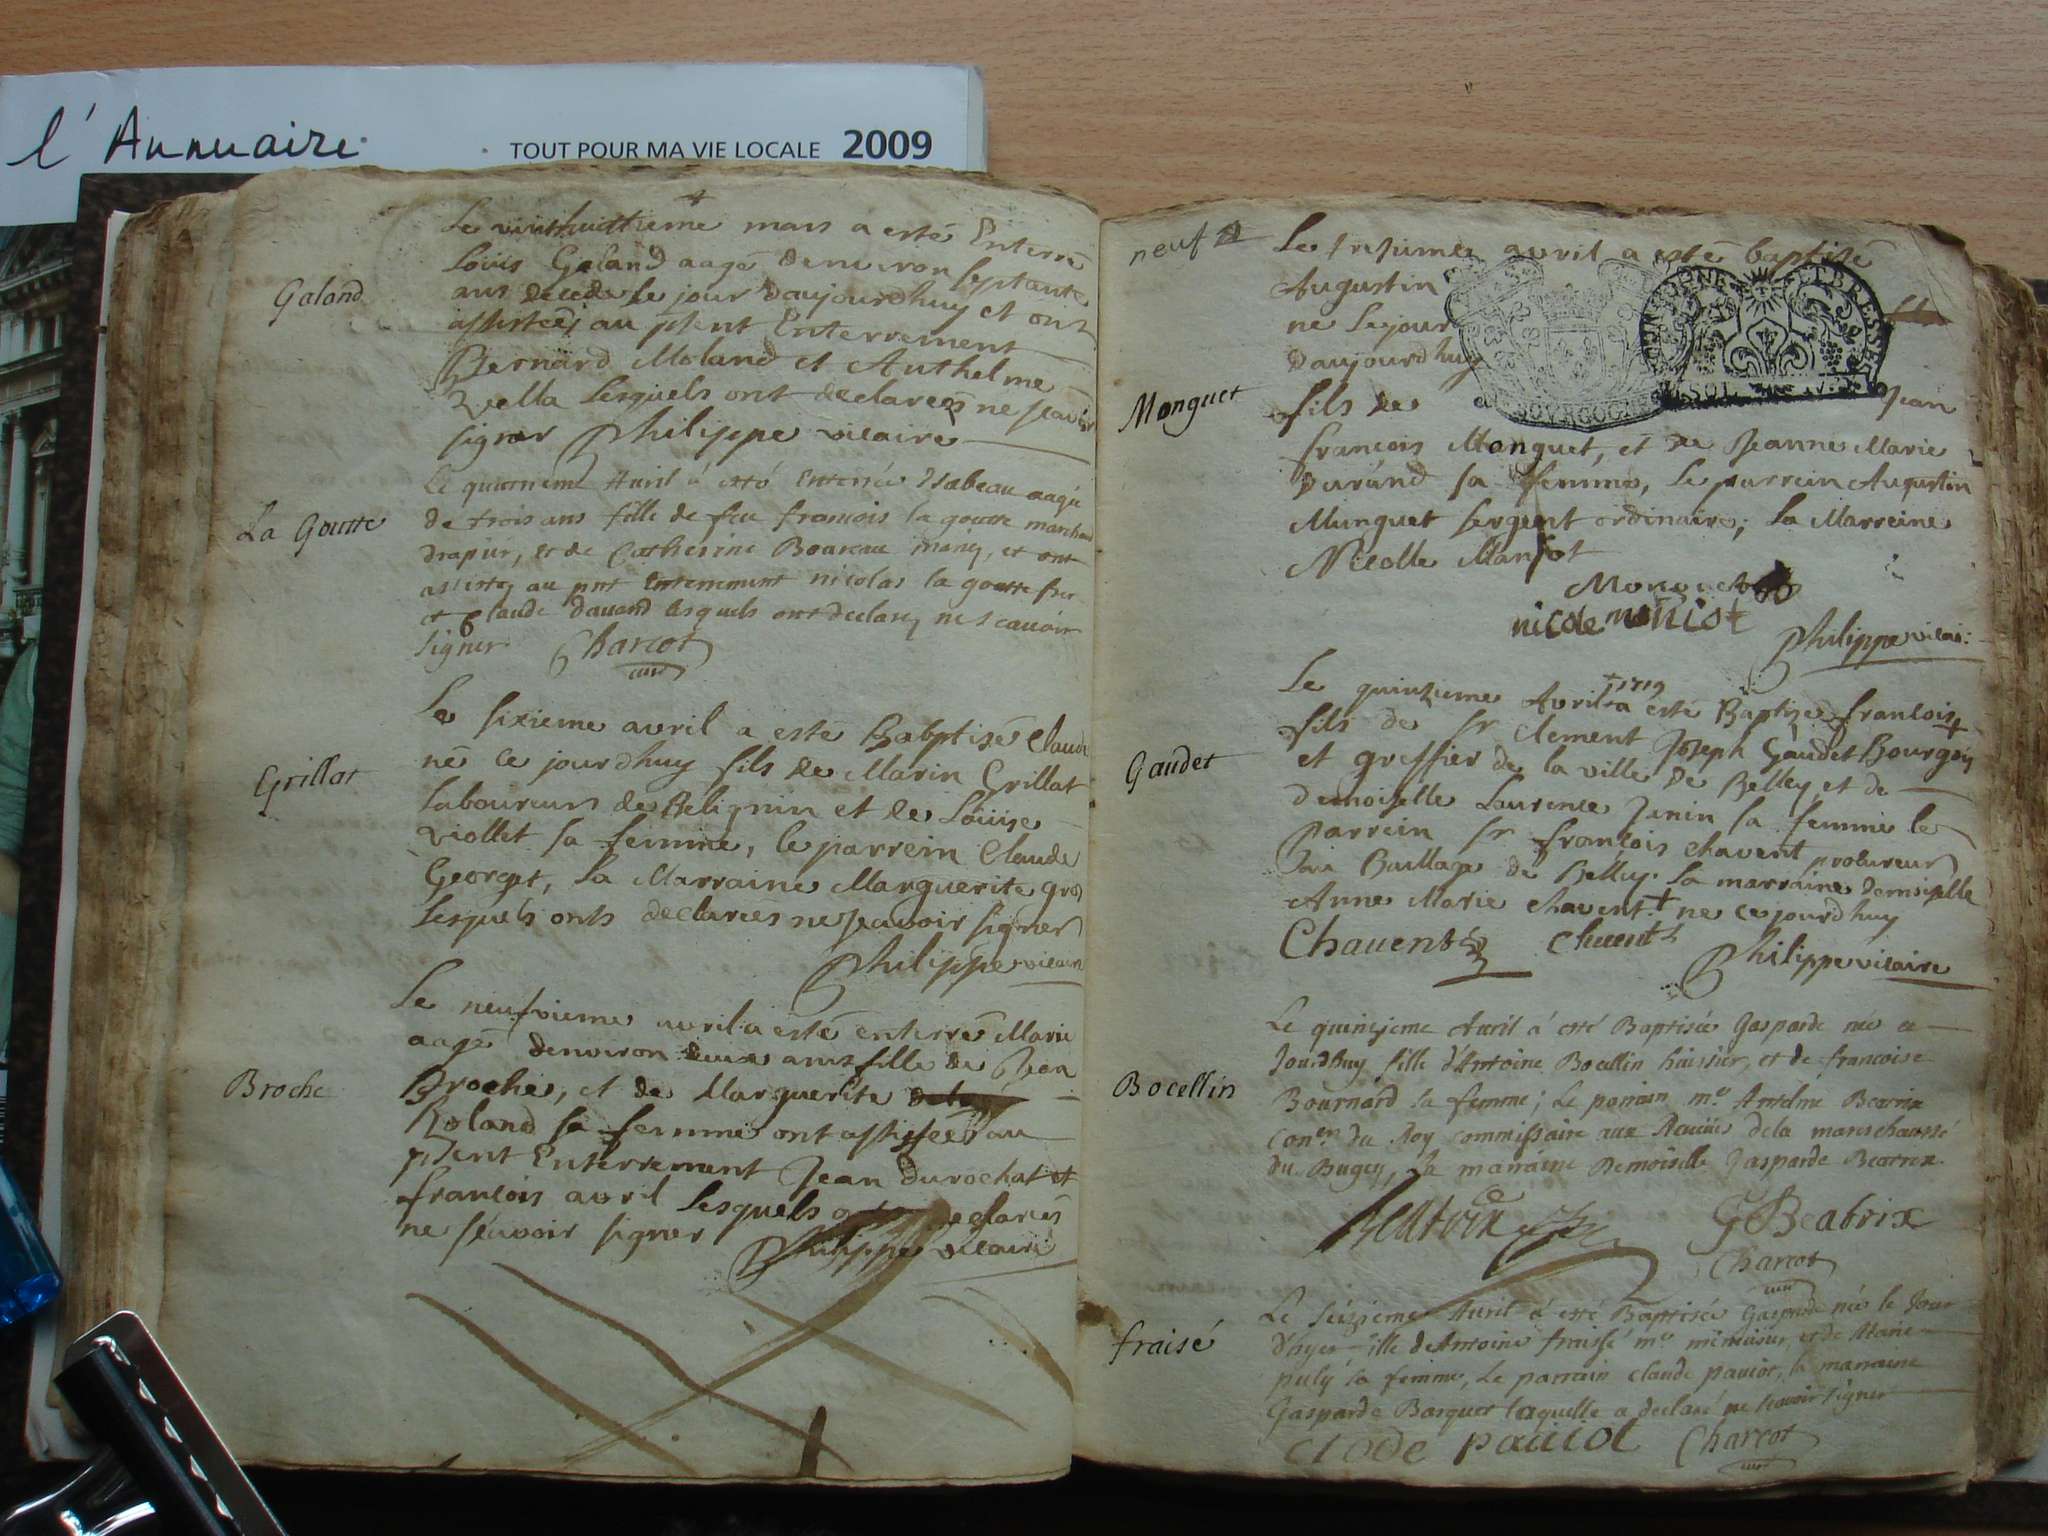 l'Annuaire
TOUT POUR MA VIE LOCALE 2009
Le vinthuittieme mars a esté Enterré
Galand
Louis Galand aagé denviron septante
ans decede le jour daujourdhuy et ont
assistéés au psent Enterrement
Bernard Moland et Anthelme
Vella Lesquels ont declareés ne scavoir
signer Philippe vicaire
Le quatrieme Avril à esté enterrée Isabeau aagée
La Goutte
de trois ans fille de feu francois la goutte marchand
drapier, et de Catherine Boureau mariez, et ont
assistez au pnt Enterrement nicolas la goutte
et Claude davand lesquels ont declarez ne scavoir
signer Charcot
Le sixieme avril a esté Babptisé Claude
né ce jourdhuy fils de Marin Grillat
Grillat
Laboureurs de Belignin et de Louise
Viollet sa femme, le parrein Claude
Georget, La Marraine Marguerite gros
Lesquels onts declareés ne scavoir signer
Philippe vicaire
Le neufvieme avril a esté enterré Marie
aagé denviron deux ans fille de Jean
Broche
Broche, et de Marguerite
Roland sa femme ont assisteés au
psent Enterrement Jean durochat et
francois avril Lesquels ont declareés
ne scavoir signer Philippe vicaire
neuf
Le avril a esté baptisé
Augustin
ne Le jour
daujourdhuy
Monguet
fils de Jean
francois Monguet, et de Jeanne Marie
Durand sa femme, Le parrein Augustin
Munguet sergent ordinaire; La Marreine
Nicolle Mansot
Monguet
nicole
Philippe vicai:
Le quinzieme Avril + 1719 a esté Baptizé francois +
fils de sr Clement Joseph Gaudet Bourgois
Gaudet
et greffier de la ville de Belley et de
demoiselle Laurence Janin sa femme le
Parrein sr francois chavent procureur
Baillage de Belley. La marraine demoiselle
Anne Marie chavent. + ne ce jourdhuy
Chavent Chavent
Philippe vicaire
Le quinzieme Avril à esté Baptisée Gasparde née ce
Jourdhuy fille d'Antoine Bocellin huissier, et de francoise
Bocellin
Bournard sa femme; Le parrain me Antelme Beatrix
Coner du Roy commissaire aux Reveües de la mareschaussé
du Bugey, La marraine Demoiselle Gasparde Beatrix
Beatrix G Beatrix
Charcot
Le seizieme Avril à esté Baptisée Gasparde née le Jour
fraisé
d'hyer fille de Antoine fraissé me menuisier, et de Marie
puly sa femme, Le parrain Claude pauiot, la marraine
Gasparde Basquet laquelle a declaré ne scavoir signer
Clode pauiot Charcot